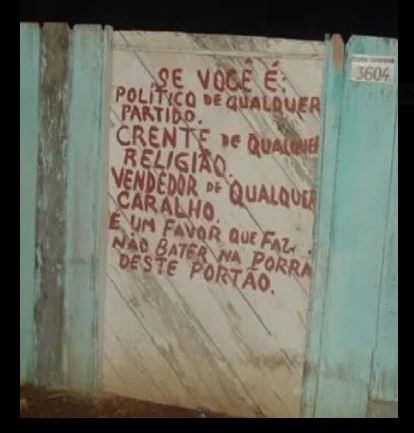 3604
SE VOCÊ É:
POLÍTICO DE QUALQUER
PARTIDO.
CRENTE DE QUALQUER
RELIGIÃO.
VENDEDOR DE QUALQUER
CARALHO.
É UM FAVOR QUE FAZ.
NÃO BATER NA PORRA
DESTE PORTÃO.